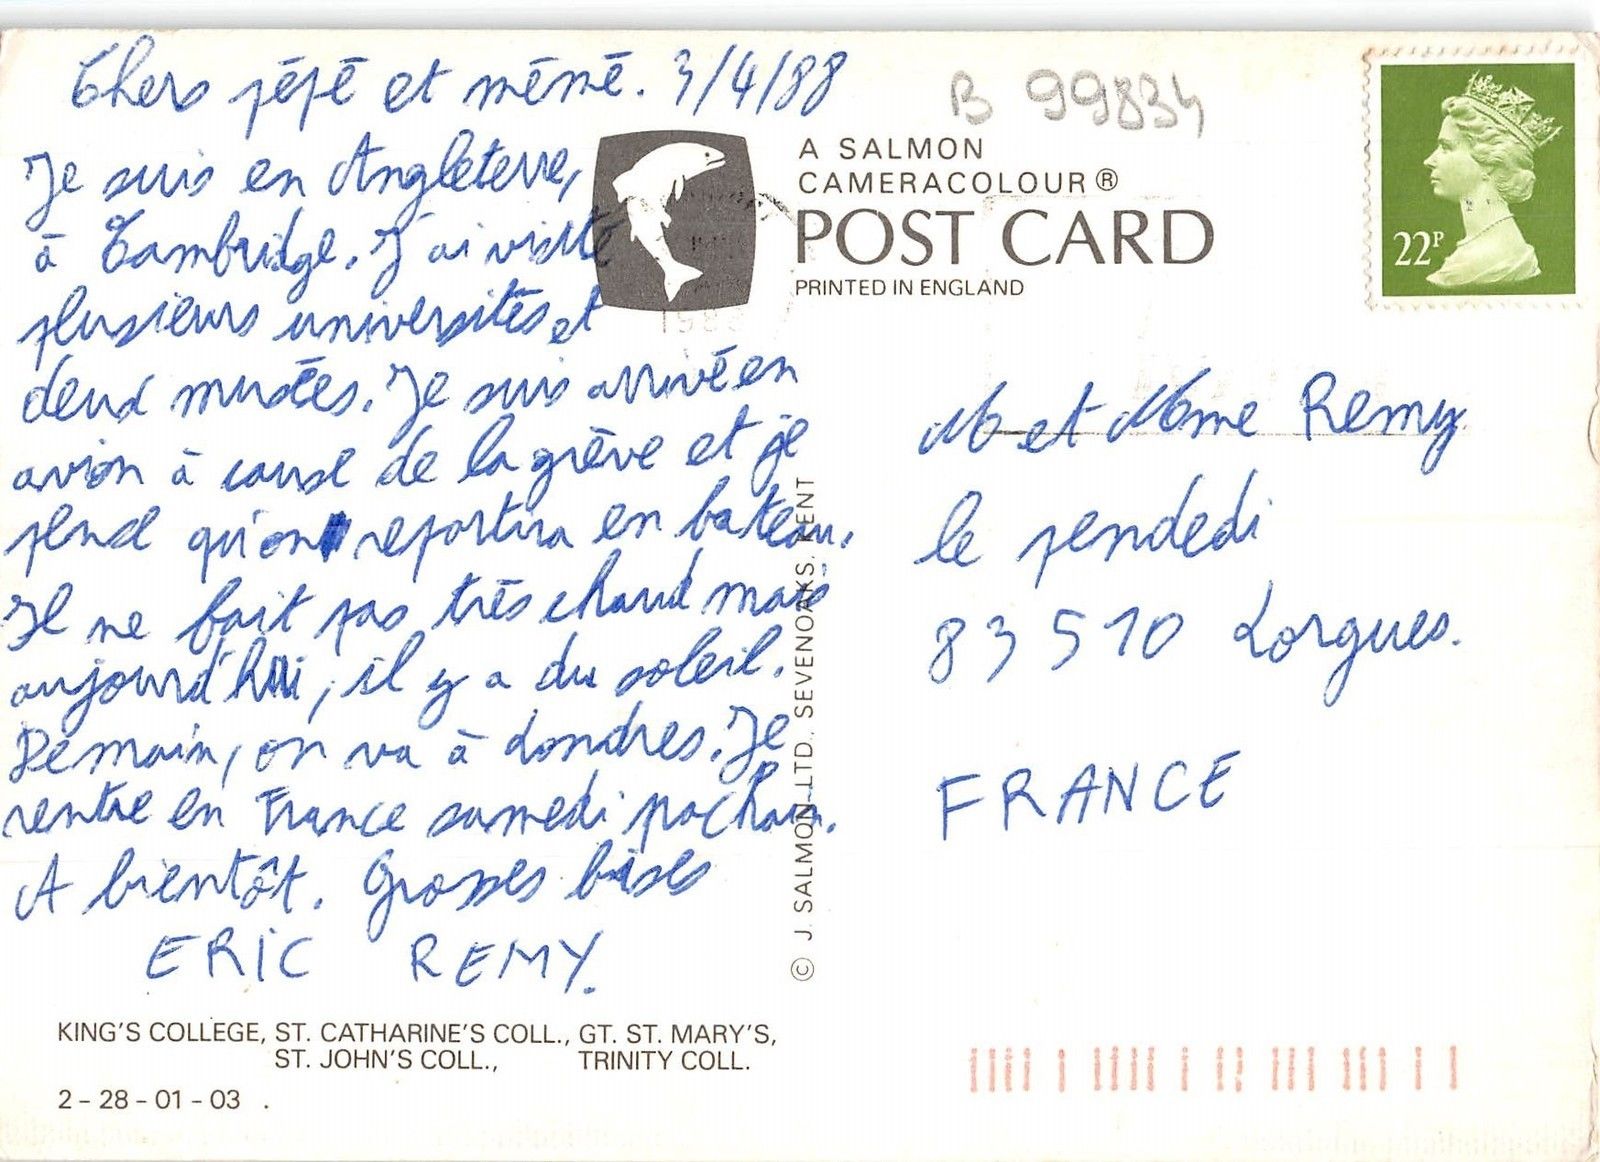 Chers pépé et mémé. 3/4/88
Je suis en Angleterre,
à Cambridge. J'ai visité
plusieurs universités et
deux musées. Je suis arrivé en
avion à cause de la grève et je
pense qu'on repartira en bateau.
Il ne fait pas très chaud mais
aujourd'hui, il y a du soleil.
Demain, on va à Londres. Je
rentre en France samedi prochain.
A bientôt. Grosses bises
ERIC REMY.
KING'S COLLEGE, ST. CATHARINE'S COLL., GT. ST. MARY'S,
ST. JOHN'S COLL., TRINITY COLL.
2 – 28 – 01 – 03 .
B 99834
A SALMON
CAMERACOLOUR ®
POST CARD
PRINTED IN ENGLAND
© J. SALMON LTD., SEVENOAKS, KENT
22P
M et Mme Remy
le pendedi
83510 Lorgues.
FRANCE